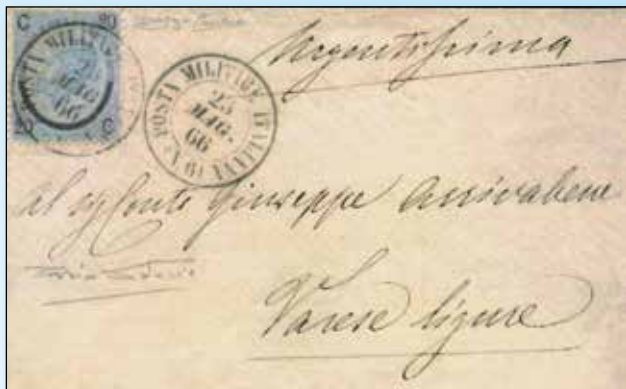 C 20
POSTA MILITARE
23
MAG.
66
POSTA MILITARE ITALIANA
23
MAG.
66
Urgentissima
Al Sig Conte Giuseppe Arrivabene
Varese ligure